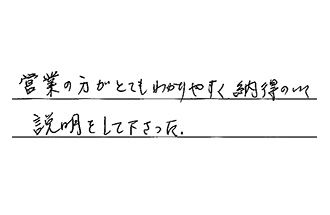 営業の方がとてもわかりやすく納得のいく
説明をして下さった.